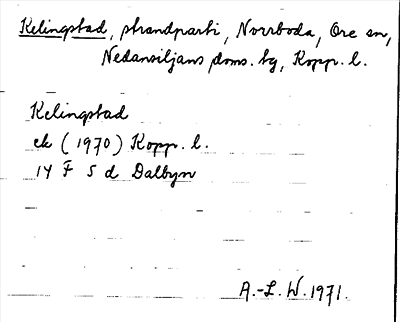 Kelingstad, strandparti, Norrboda, Ore sn,
Nedansiljans doms. tg, Kopp. l.
Kelingstad
ek (1970) Kopp. l.
14 F 5 d Dalbyn
A.-L. W. 1971.